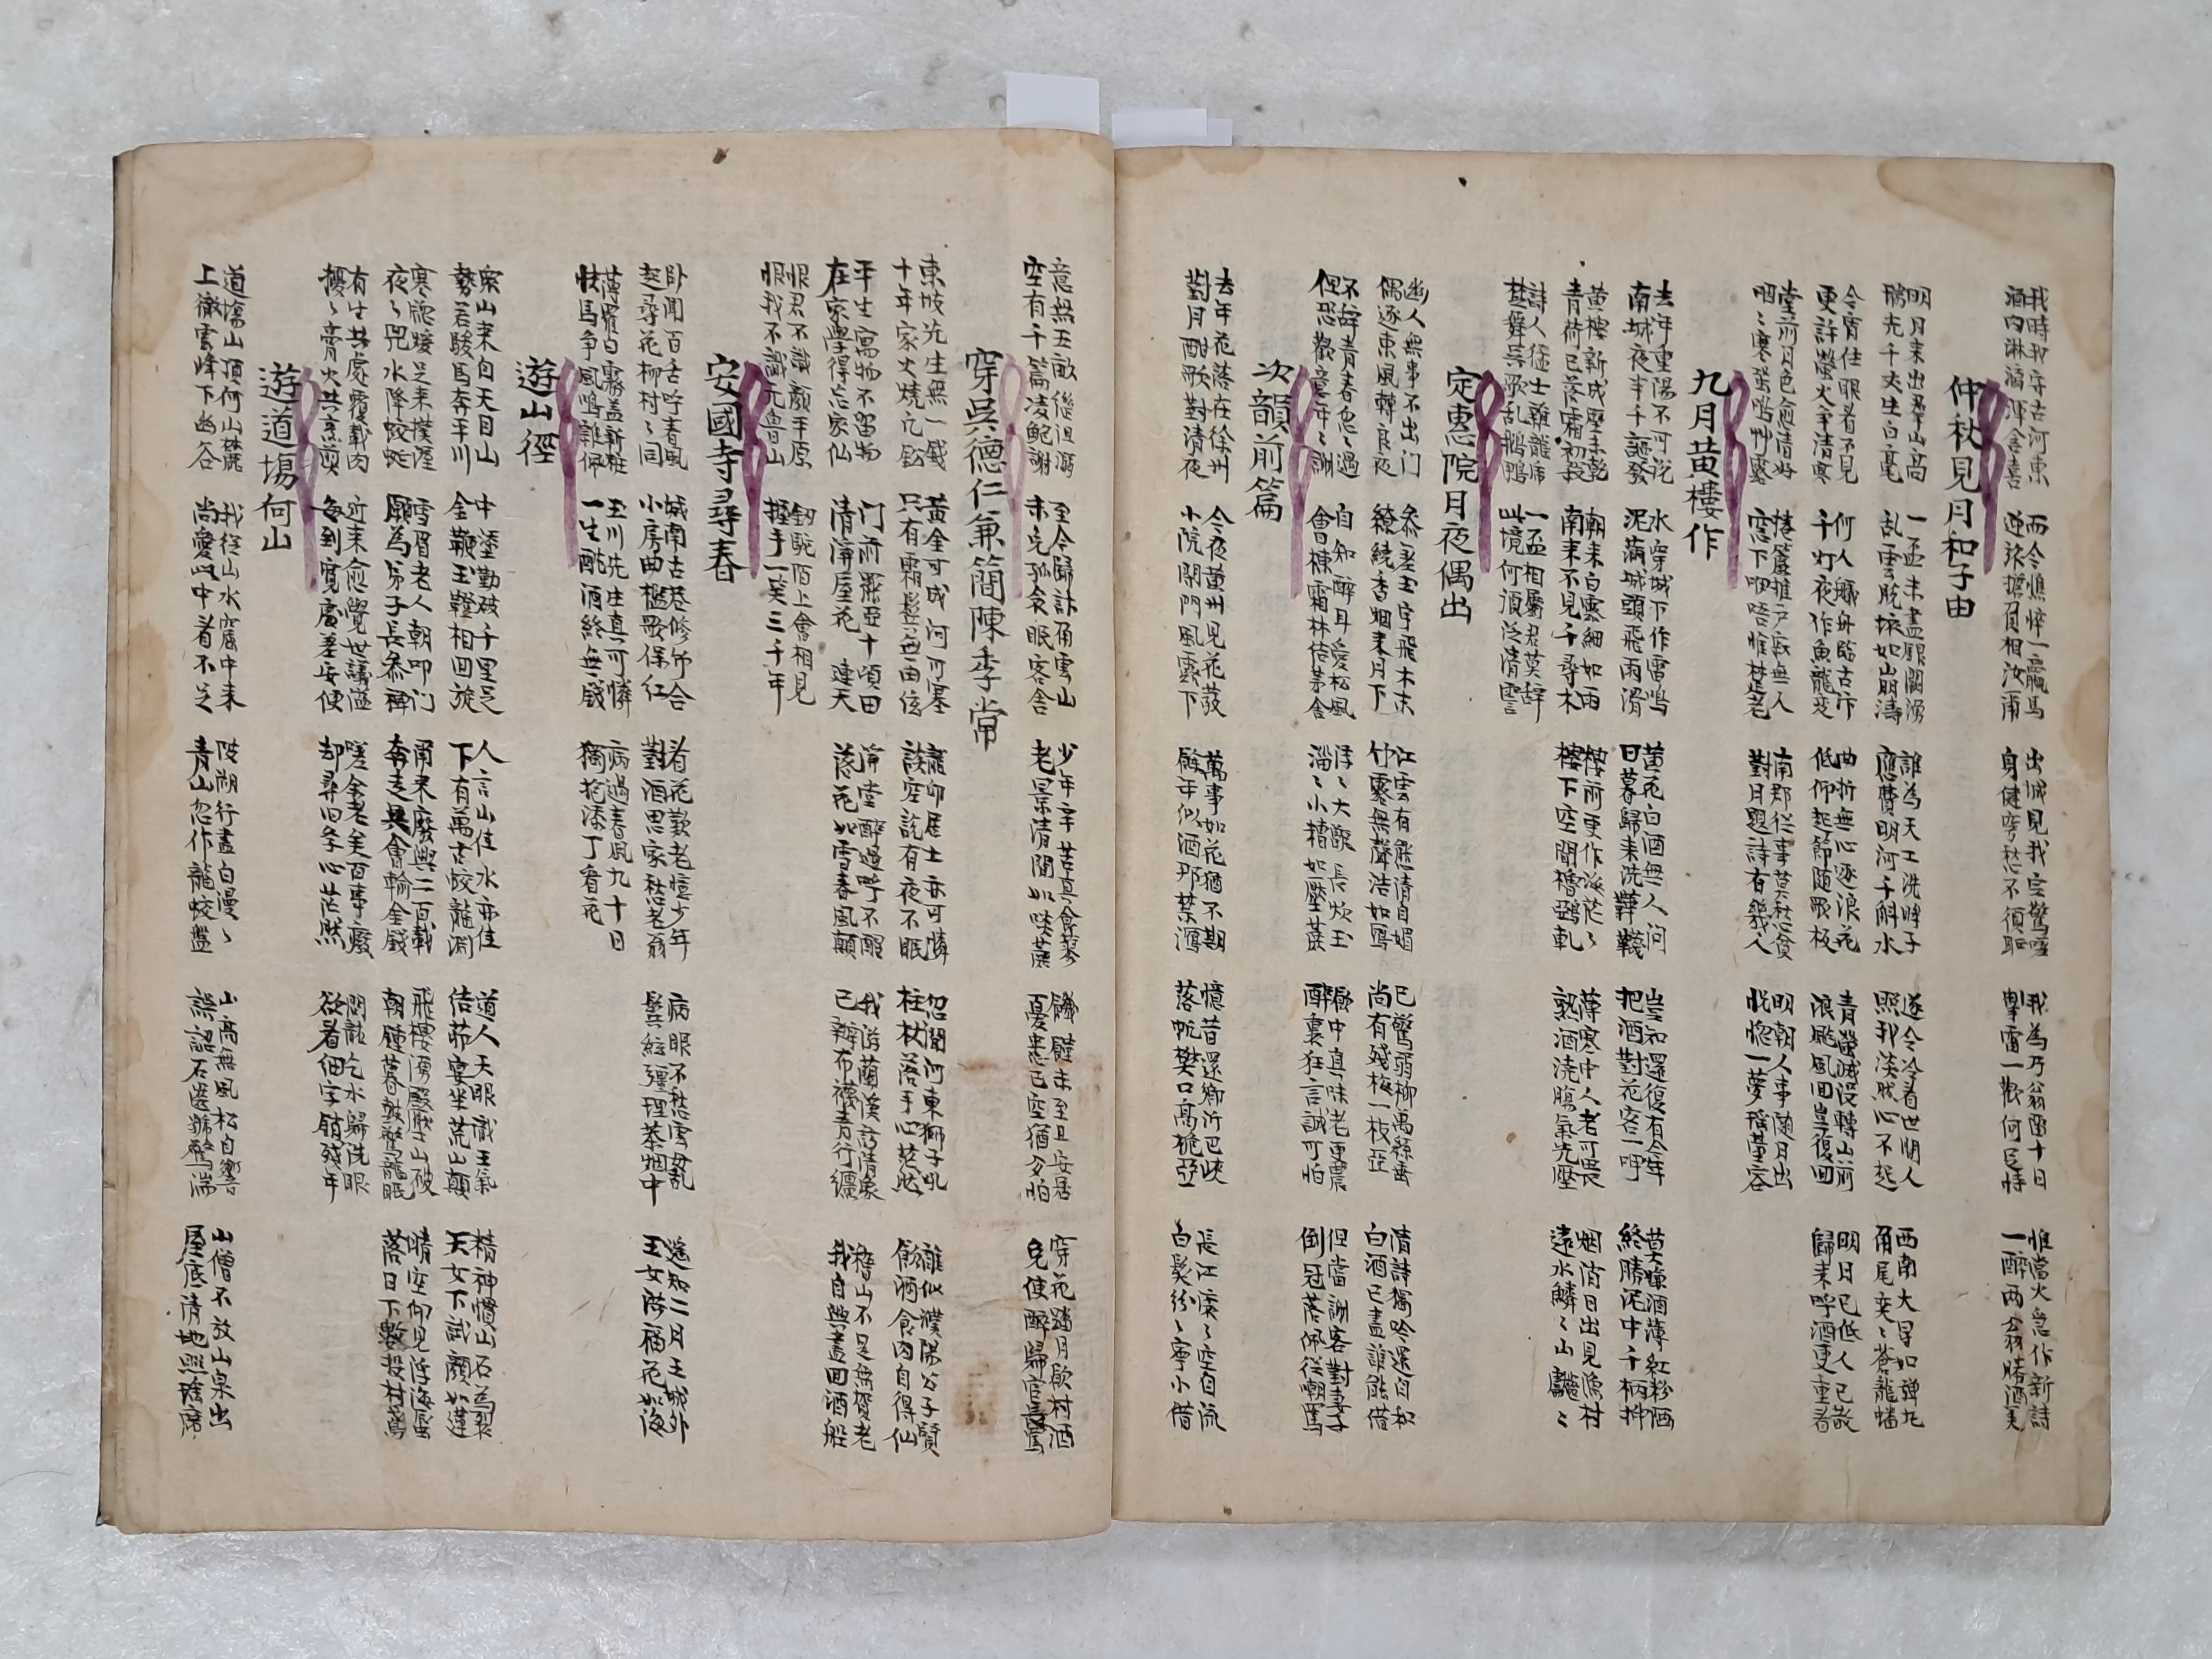 我時我守古河東
酒肉淋漓渾舍喜
而今憔悴一羸馬
逆旅擔負相汝爾
出城見我定驚嗟
身健窮愁不須耻
我為乃翁留十日
掣電一歡何足恃
惟當火急作新詩
一醉兩翁勝酒美
仲秋見月和子由
明月未出群山高
瑞光千丈生白毫
一盃未盡銀闕湧
乱雲脫壞如崩濤
誰為天工洗眸子
應費明河千斛水
遂令冷看世間人
照我湛然心不起
西南大星如彈丸
角尾奕〻蒼龍蟠
今宵住眼看不見
更許螢火爭清寒
何人艤舟臨古汴
千灯夜作魚龍变
曲折無心逐浪花
低仰赴節隨歌板
青螢滅沒轉山前
浪颭風回豈復回
明月已低人已散
歸来呼酒更重看
堂前月色愈清好
咽〻寒螿鳴艸露
捲簾推戶寂無人
窓下咿唔惟楚老
南都從事莫愁貧
對月題詩有幾人
明朝人事隨日出
恍惚一夢瑤臺客
九月黃樓作
去年重陽不可說
南城夜半千漚發
水穿城下作雷鳴
泥滿城頭飛雨滑
黃花白酒無人问
日暮歸来洗鞾韈
豈知還復有今年
把酒對花容一呷
莫嫌酒薄紅粉陋
終勝泥中千柄揷
黃樓新成壁未乾
青荷已落霜初殺
朝来白霧細如雨
南来不見千尋木
樓前更作海茫〻
樓下空聞櫓鵶軋
薄寒中人老可畏
熱酒澆膓氣先壓
烟消日出見漁村
遠水鱗〻山齾〻
詩人猛士雜龍席
楚舞吳歌乱鵝鴨
一盃相屬君莫辭
此境何須泛清霅
定惠院月夜偶出
幽人無事不出门
偶逐東風轉良夜
參差玉宇飛木末
繚繞香烟来月下
江雲有態清自媚
竹露無聲浩如瀉
已驚弱柳萬絲垂
尚有殘梅一枝亞
清詩獨吟還自和
白酒已盡誰能借
不辭青春忽〻過
但恐歡意年〻謝
自知醉耳愛松風
會揀霜林結茅舍
浮〻大甑長炊玉
溜〻小槽如壓蔗
飲中真味老更濃
醉裏狂言誠可怕
但當謝客對妻子
倒冠落佩從嘲罵
次韻前篇
去年花落在徐州
對月酣歌對清夜
今夜黃州見花發
小院閉門風露下
萬事如花猶不期
餘年似酒那禁瀉
憶昔還鄉泝巴峽
落帆樊口高桅亞
長江滾〻空自流
白髮紛〻寧小借
意無五畝継沮溺
空有千篇凌鮑謝
至今歸計負雲山
未免孤衾眠客舍
少年辛苦真食蓼
老景清閑如啖蔗
饑饉未至且安居
憂患已空猶夢怕
穿花踏月飲村酒
免使醉歸官長罵
穿吳德仁兼簡陳季常
東坡先生無一錢
十年家火燒凡鈆
黃金可成河可塞
只有霜髩無由玄
龍丘居士亦可憐
談空說有夜不眠
忽聞河東獅子吼
柱杖落手心茫然
誰似濮陽公子賢
飲酒食肉自得仙
平生寓物不留物
在家學得忘家仙
门前罷亞十頃田
清溪遶屋花連天
溪堂醉過呼不醒
落花如雪春風顛
我游蘭溪訪清泉
已辦布襪青行纏
稽山不是無賀老
我自興盡回酒船
恨君不識顏平原
恨我不識元魯山
銅駝陌上會相見
握手一笑三千年
安國寺尋春
卧聞百舌呼春風
起尋花柳村〻同
城南古巷修竹合
小房曲檻欹保紅
看花歎老憶少年
對酒思家愁老翁
病眼不愁雲母乱
鬂絲強理茶烟中
遙知二月王城外
玉女洪福花如海
薄罹白霧蓋新粧
快馬争風鳴雜佩
玉川先生真可憐
一生酖酒終無錢
病過春風九十日
獨抱添丁看花
遊山徑
衆山来自天目山
勢若駿馬奔平川
中塗勒破千里足
金鞭玉鐙相回旋
人言山佳水亦佳
下有萬古蛟龍淵
道人天眼識王氣
结茆宴坐荒山顛
精神慣山石為裂
天女下試顏如蓮
寒窓暖足来撲渥
夜〻咒水降蛟蜒
雪眉老人朝叩门
願為弟子長參禅
爾来廢興三百載
奔走具會輸金錢
飛樓湧殿壓山破
朝鍾暮鼓驚龍眠
晴空仰見浮海蜃
落日下數投村鳶
有生共處覆載內
擾〻膏火共烹煎
近来愈覺世議隘
每到寬處差安便
嗟余老矣百事廢
却尋旧學心茫然
問龍乞水歸洗眼
欲看細字銷殘年
遊道塲何山
道塲山頂何山麓
上徹雲峰下幽谷
我從山水窟中来
尚愛此中看不足
陂湖行盡白漫〻
青山忽作龍蛇盤
山高無風松自響
誤認石齒號驚湍
山僧不放山泉出
屋底清池照瑤席